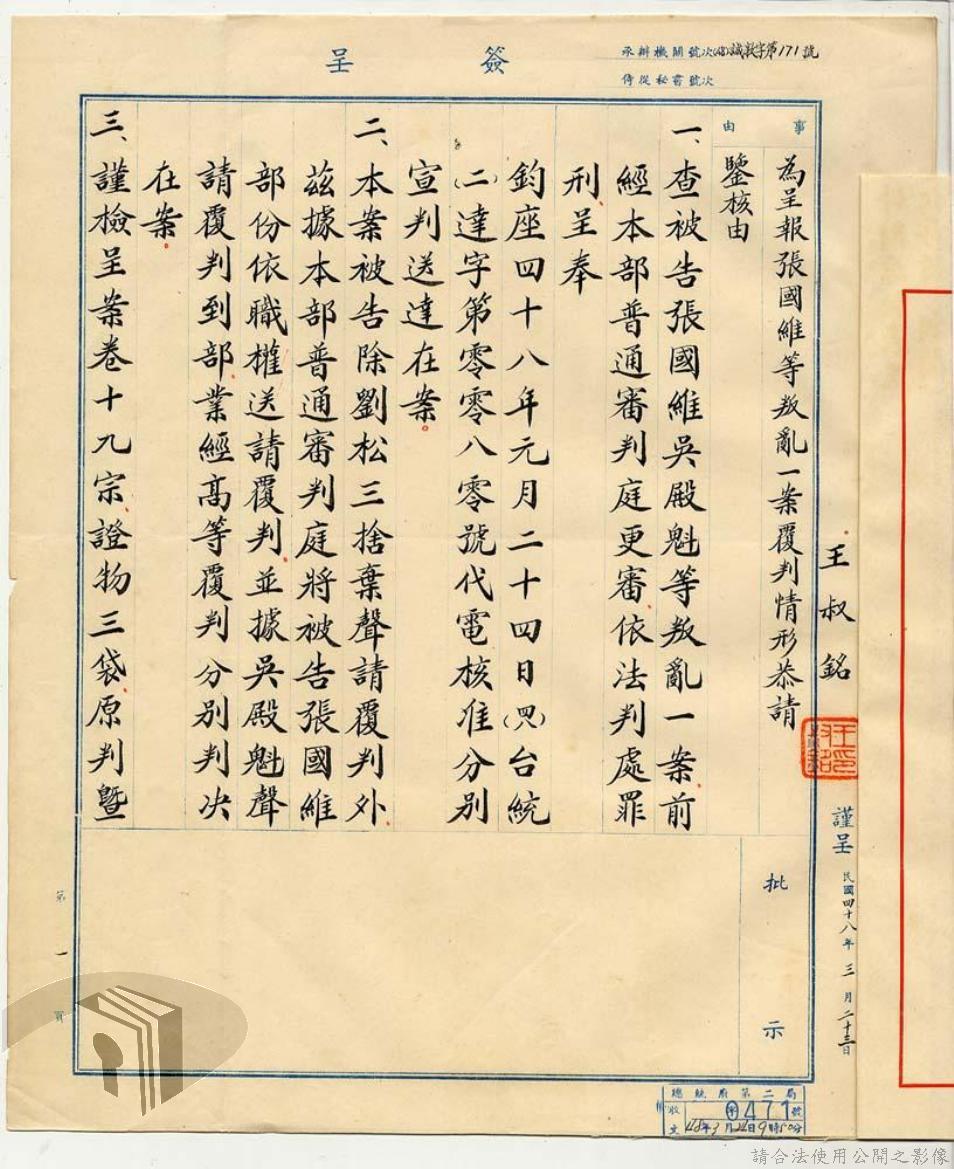 簽呈
承辦機關號次(48)誠教字第171號
侍從秘書號次
事由
為呈報張國維等叛亂一案覆判情形恭請
鑒核由
一、查被告張國維吳殿魁等叛亂一案前
經本部普通審判庭更審依法判處罪
刑呈奉
鈞座四十八年元月二十四日(四八)台統
(二)達字第零零八零號代電核准分別
宣判送達在案。
二、本案被告除劉松三捨棄聲請覆判外
茲據本部普通審判庭將被告張國維
部份依職權送請覆判並據吳殿魁聲
請覆判到部業經高等覆判分別判決
在案
三、謹檢呈案卷十九宗證物三袋原判暨
批示
王叔銘
謹呈
民國四十八年三月二十三日
第一頁
總統府第二局
收文
0471號
48年3月24日9時50分
請合法使用公開之影像